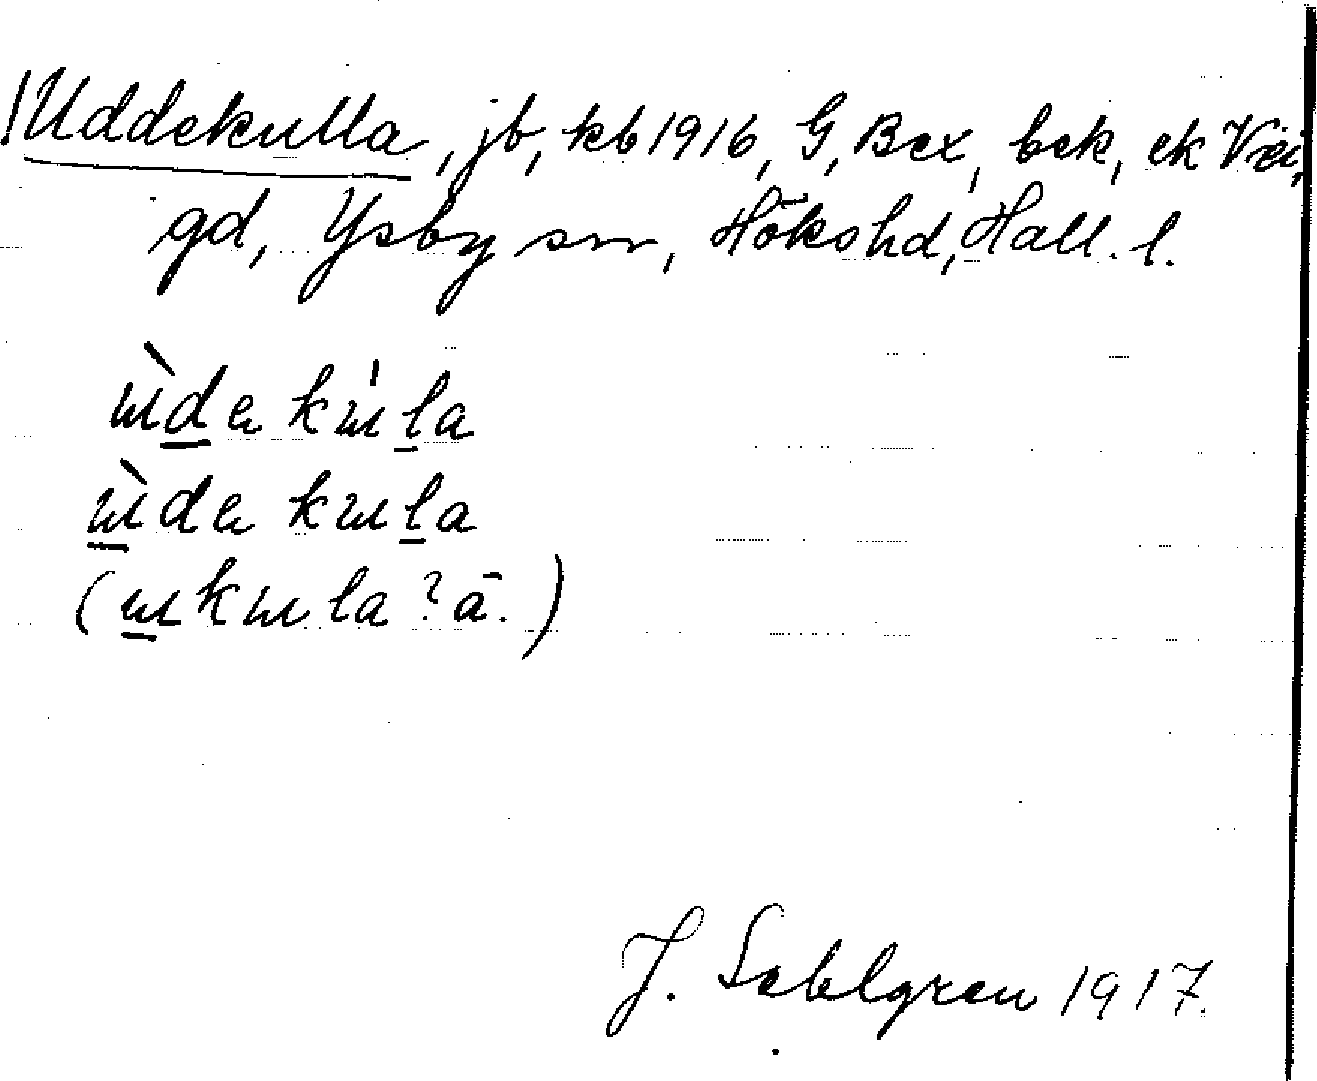 Uddekulla, jb, kb 1916, G, Bex, bek, ek
gd, Ysby sn, Höks hd, Hall. l.
ɯ̀da kɯ́la
ɯ̀da kɯla
(ɯkɯla? ā.)
J. Sahlgren 1917.